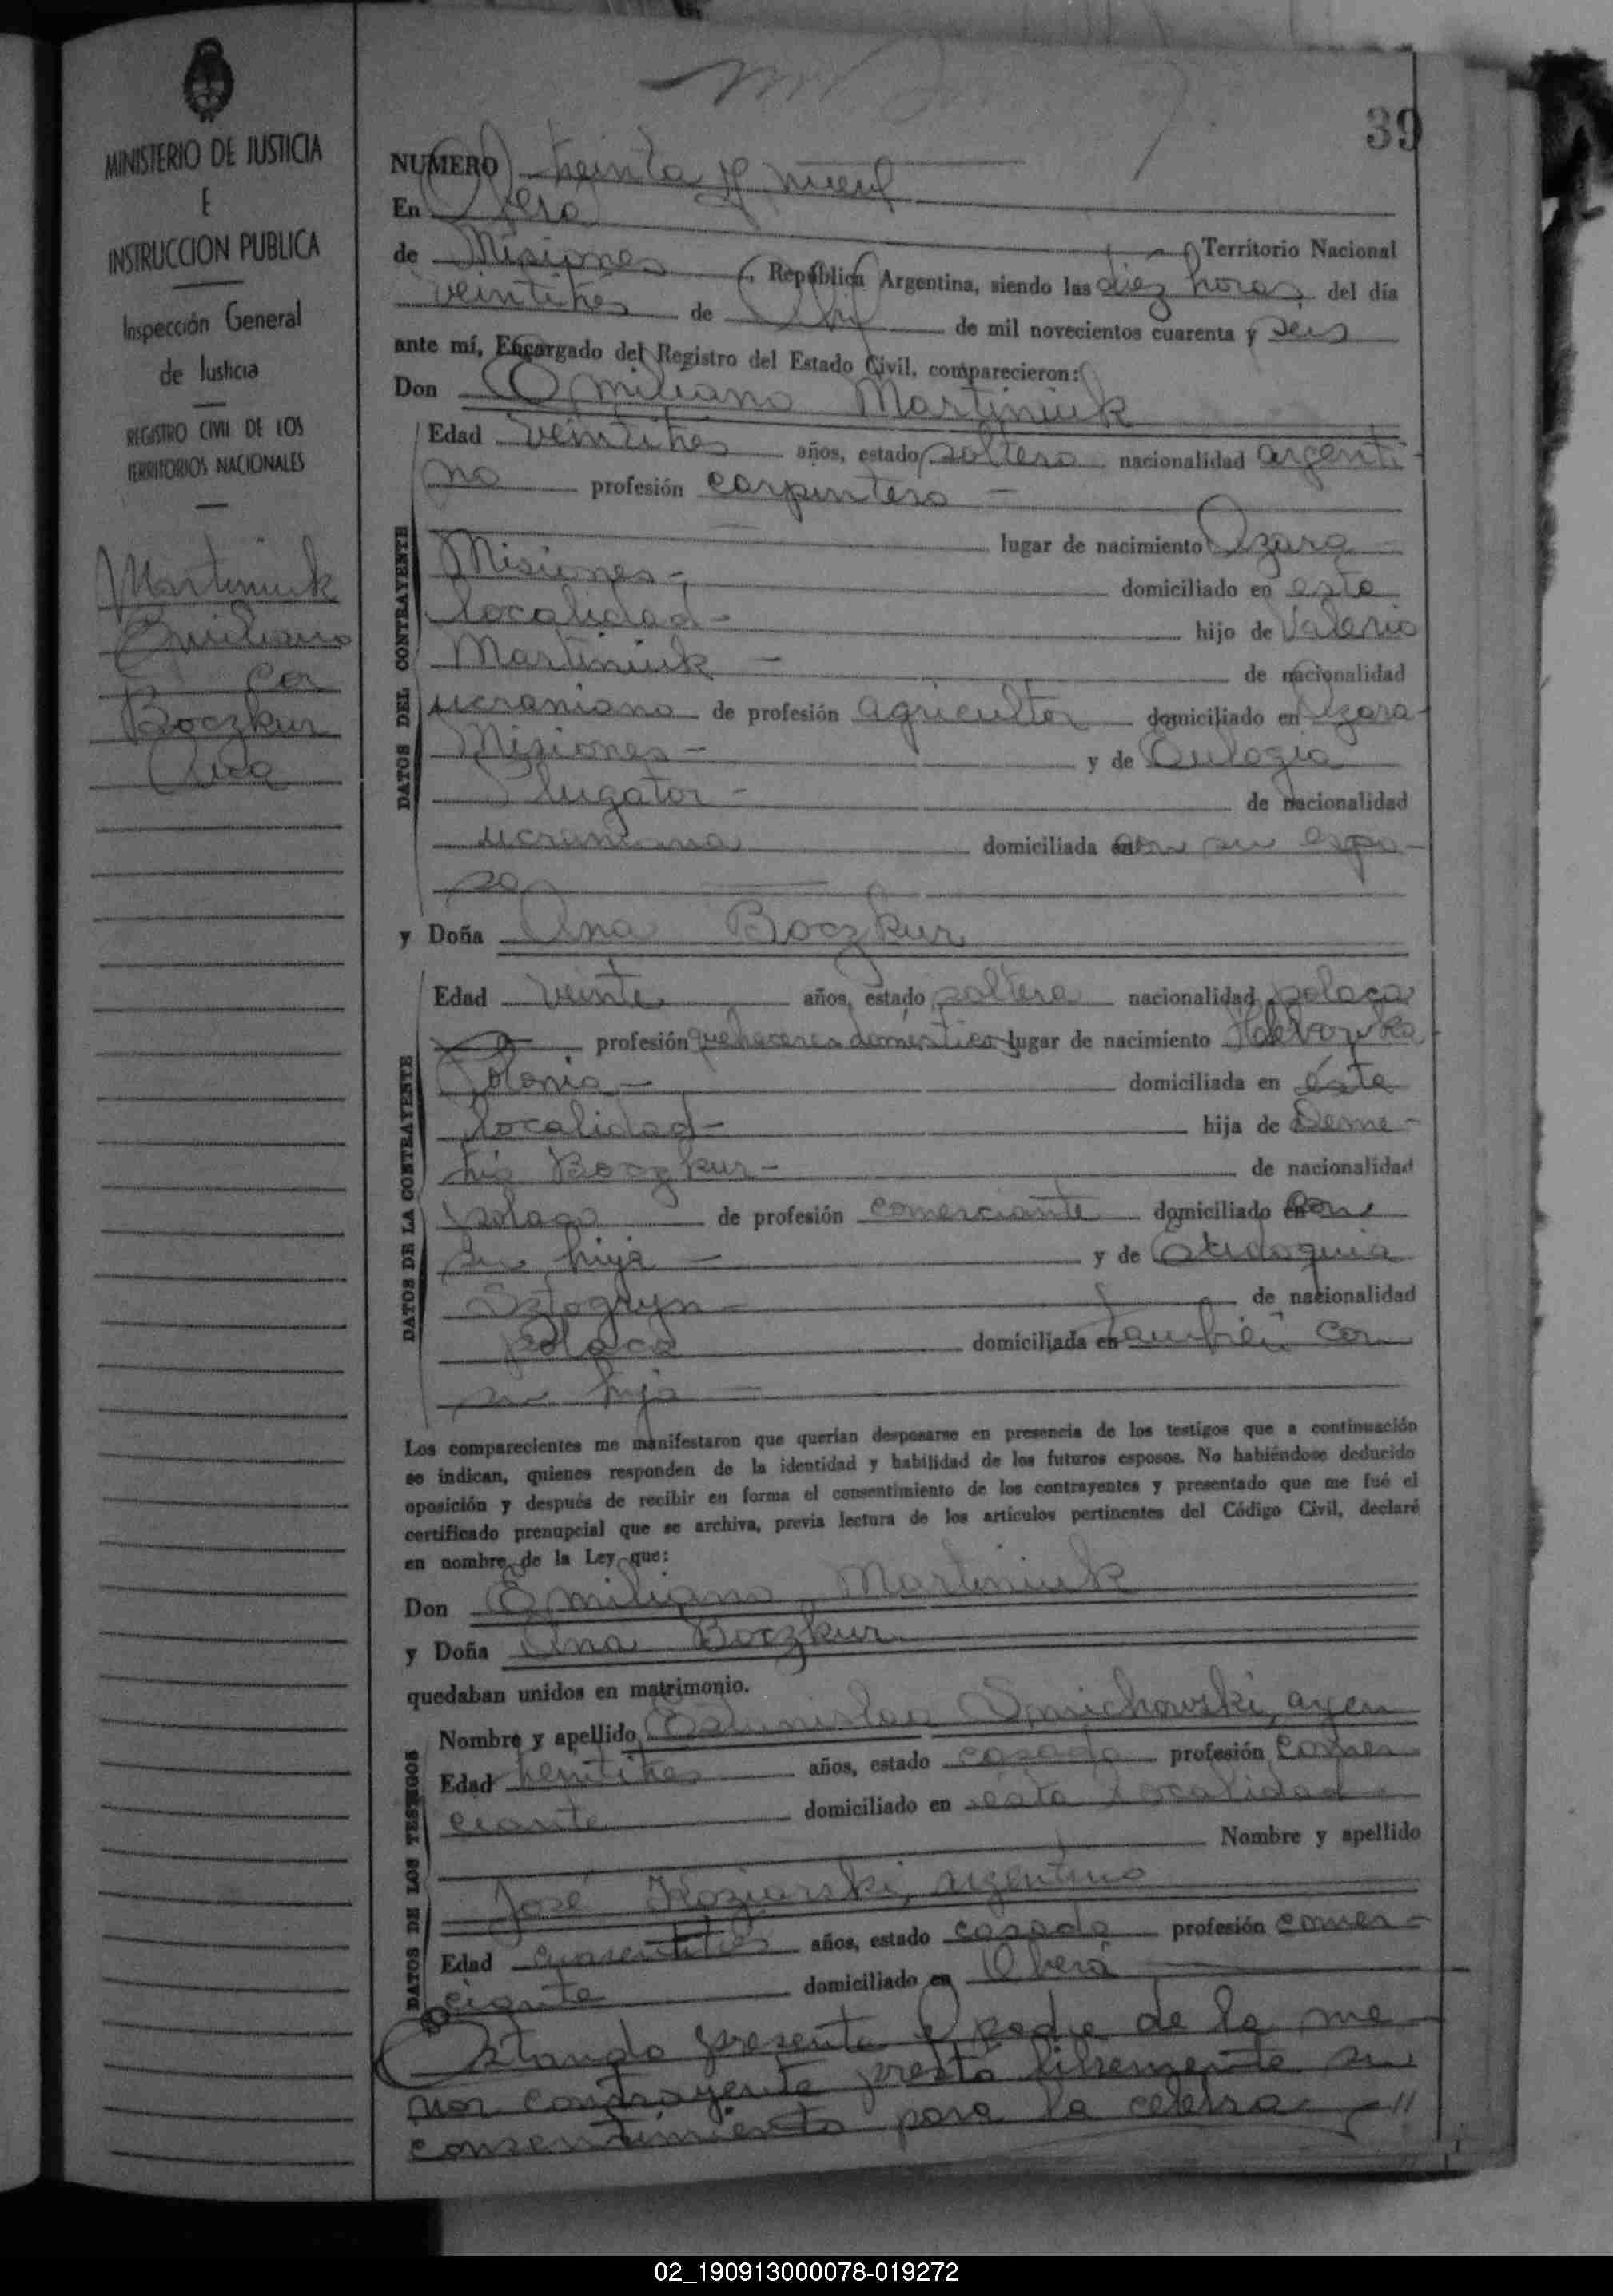 MINISTERIO DE JUSTICIA
E
INSTRUCCION PUBLICA
Inspección General
de Justicia
REGISTRO CIVIL DE LOS
TERRITORIOS NACIONALES
Martiniuk
Emiliano
con
Boczkur
Ana
39
NUMERO treinta y nueve
En Oberá
Territorio Nacional
de Misiones República Argentina, siendo las diez horas del día
veintitrés de Abril de mil novecientos cuarenta y seis
ante mí, Encargado del Registro del Estado Civil, comparecieron:
Don Emiliano Martiniuk
DATOS DEL CONTRAYENTE
Edad veintitres años, estado soltero nacionalidad argenti-
no profesión carpintero -
lugar de nacimiento Azara
Misiones - domiciliado en esta
localidad - hijo de Valerio
Martiniuk - de nacionalidad
ucraniano de profesión agricultor domiciliado en Azara-
Misiones - y de Eulogia
Plugator - de nacionalidad
ucraniana domiciliada en con su espo-
so
y Doña Ana Boczkur
DATOS DE LA CONTRAYENTE
Edad veinte años, estado soltera nacionalidad polaca
profesión quehaceres domésticos lugar de nacimiento
Polonia - domiciliada en ésta
localidad - hija de Deme-
trio Boczkur - de nacionalidad
polaco de profesión comerciante domiciliado en con
su hija - y de
Sztogryn - de nacionalidad
polaca domiciliada en también con
su hija -
Los comparecientes me manifestaron que querían desposarse en presencia de los testigos que a continuación
se indican, quienes responden de la identidad y habilidad de los futuros esposos. No habiéndose deducido
oposición y después de recibir en forma el consentimiento de los contrayentes y presentado que me fué el
certificado prenupcial que se archiva, previa lectura de los artículos pertinentes del Código Civil, declaré
en nombre de la Ley que:
Don Emiliano Martiniuk
y Doña Ana Boczkur
quedaban unidos en matrimonio.
DATOS DE LOS TESTIGOS
Nombre y apellido Estanislao
Edad años, estado casado profesión comer-
ciante domiciliado en ésta localidad -
Nombre y apellido
José Koziarski, argentino
Edad años, estado casado profesión comer-
ciante domiciliado en Oberá
Estando presente el padre de la me-
nor contrayente prestó libremente su
consentimiento para la celebra- -"
02_190913000078-019272